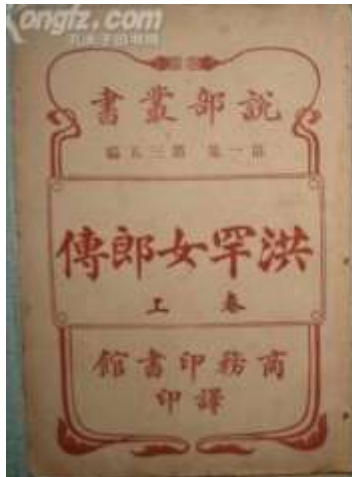 ongfz.com
孔夫子旧书网
說部叢書
第一集 第三五編
洪罕女郎傳
卷上
商務印書館
譯印